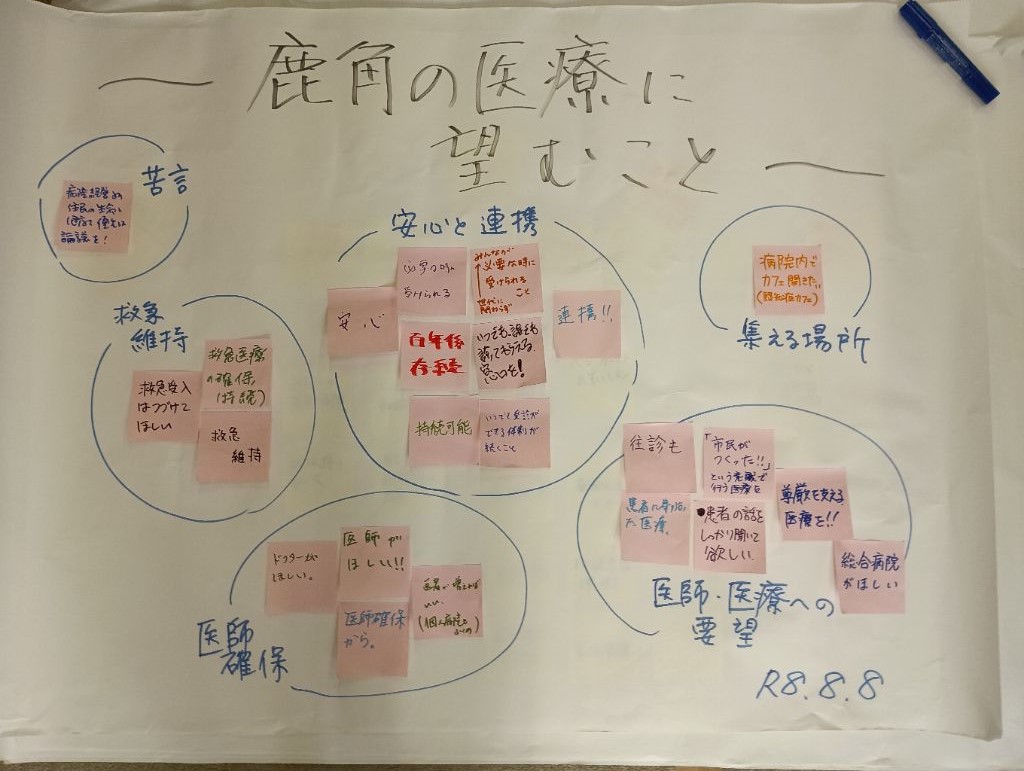 ～鹿角の医療に
望むこと～
苦言
病院経営より
住民の生命と
論議を！
安心と連携
安心
必要な時に
受けられる
みんなが
必要な時に
受けられる
こと
世代に
関わらず
連携!!
百年後
存続
いつでも誰でも
診てもらえる
安心を！
持続可能
いつでも受診が
できる体制が
続くこと
病院内で
カフェ開きたい
(認知症カフェ)
集える場所
救急
維持
救急医療
の確保
(持続)
救急受入
はつづけて
ほしい
救急
維持
往診も
「市民が
つくった!!」
という意識で
行う医療を
尊厳を支える
医療を!!
患者に寄りそっ
た医療。
●患者の話を
しっかり聞いて
欲しい
総合病院
がほしい
医師・医療への
要望
ドクターが
ほしい。
医師が
ほしい!!
医師確保
から。
医者が増えれば
いい
(個人病院も
医師
確保
R8.8.8